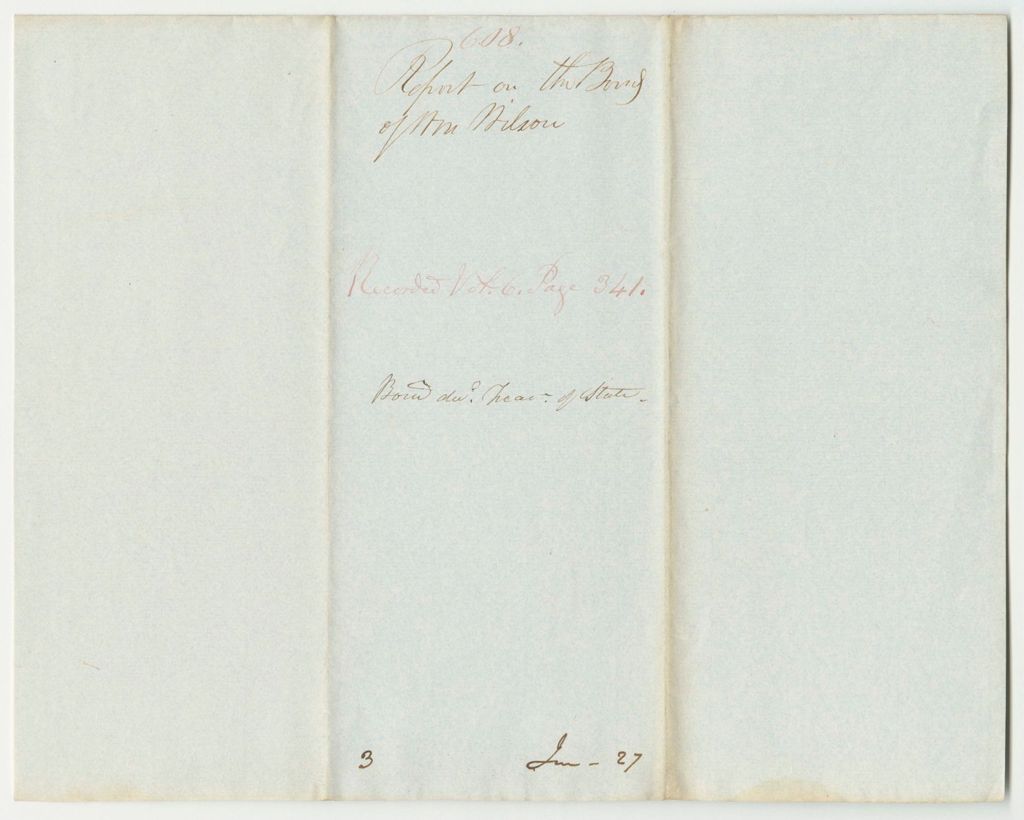 608.
Report on the Bond
of Wm Wilson
Recorded Vol. 6. Page 341.
Bond du. Trear. of State.
3 Jun - 27